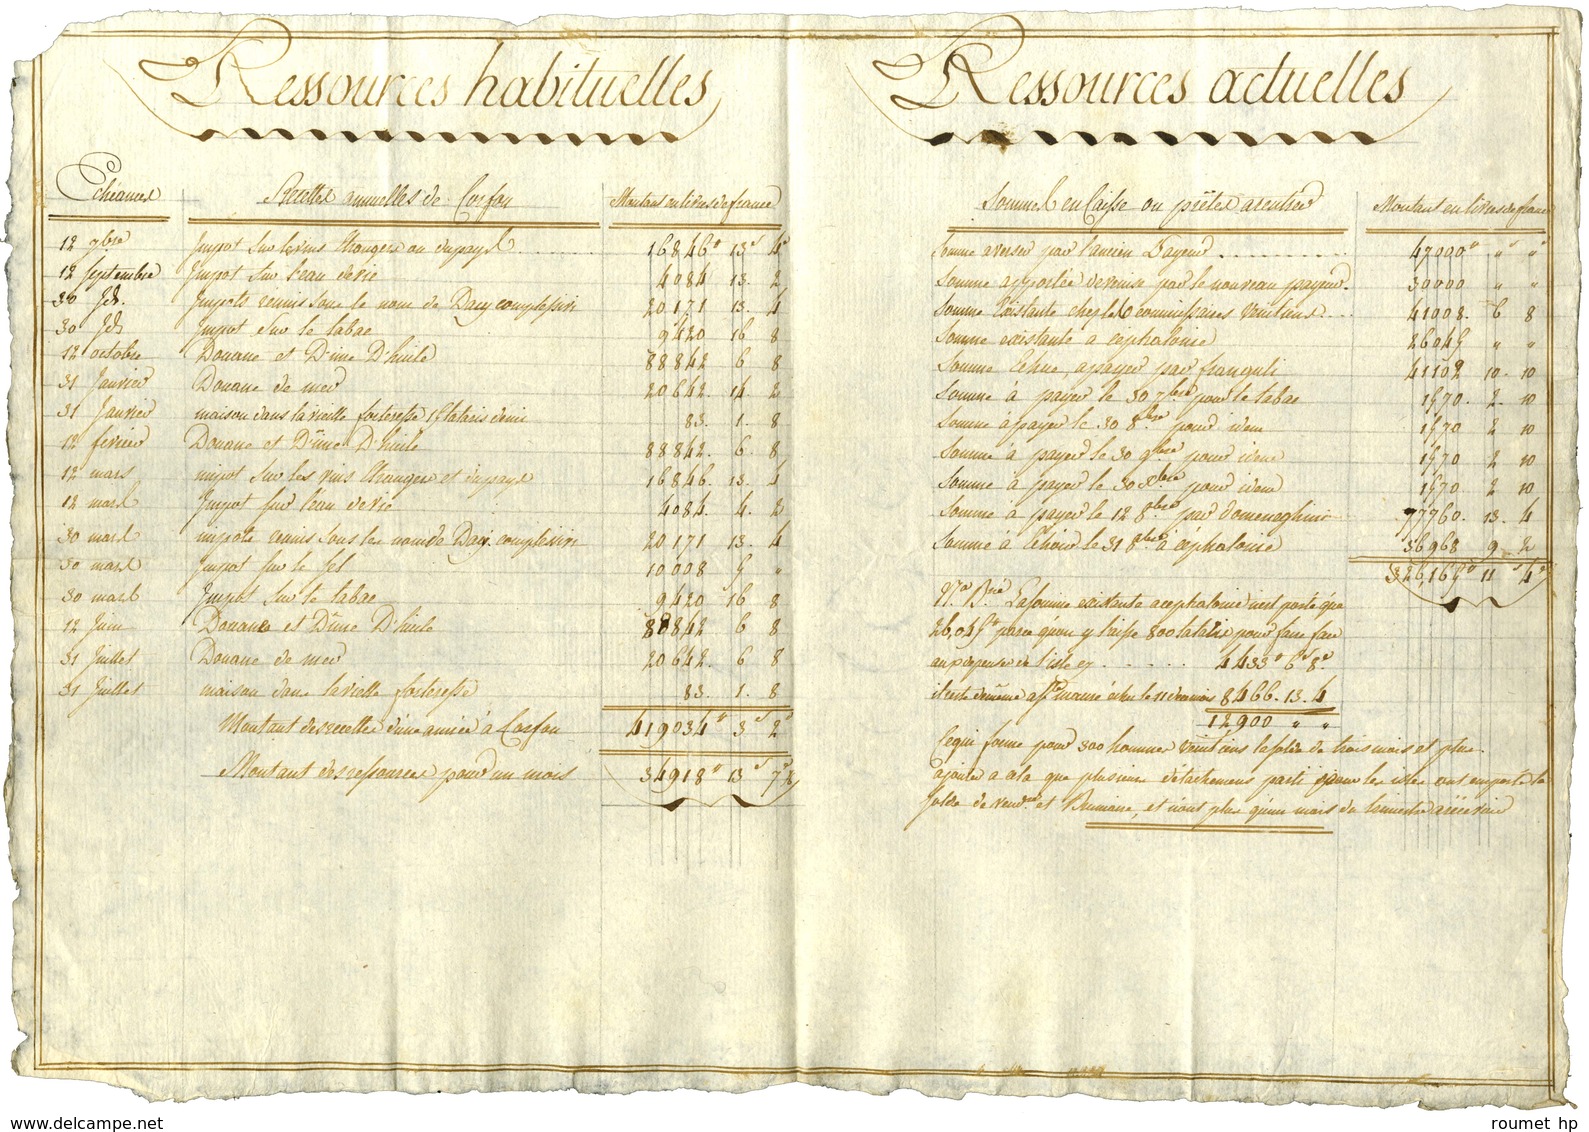 Ressources habituelles
Echéances Recettes annuelles de Corfou Montant en livres de france
12 9bre Impot sur les vins Etrangers ou du pays 16846# 13s 4d
12 Septembre Impot sur l'eau de vie 4084 13. 2
30 Id. Impots réunis sous le nom de Dacy complessivi 20171 13. 4
30 Id. Impot sur le tabac 9420 16 8
12 octobre Douane et Dime D'huile 88842 6 8
31 Janvier Douane de mer 20642 14 2
31 Janvier maison dans la vieille forteresse 83. 1. 8
12 fevrier Douane et Dime D'huile 88842. 6. 8
12 mars impot sur les vins Etrangers et du pays 16846. 13. 4
12 mars Impot sur l'eau de vie 4084 4. 2
30 mars impots reunis sous le nom de Dacy complessivi 20171 13. 4
30 mars Impot sur le sel 10008 5 "
30 mars Impot sur le tabac 9420 16 8
12 Juin Douane et Dime D'huile 88842 6 8
31 Juillet Douane de mer 20642. 6 8
31 Juillet maison dans la vielle forteresse 83. 1. 8
Montant des recettes d'une année à Corfou 419034# 3s 2d
Montant des ressources pour un mois 34918# 13s 7d
Ressources actuelles
Sommes en Caisse ou prêtes a rentrer Montant en livres de france
Somme a verser par l'ancien Payeur 47000# " "
Somme apportée de venise par le nouveau payeur. 30000 " "
Somme Existante chez les commissaires Venitiens 41008. 6 8
Somme existante a cephalonie 26045 " "
Somme échue, a payer par franguli 41102 10. 10
Somme à payer le 30 7bre pour le tabac 1570. 2. 10
Somme à payer le 30 8bre pour idem 1570 2 10
Somme à payer le 30 9bre pour idem 1570 2 10
Somme à payer le 30 Xbre pour idem 1570. 2 10
Somme à payer le 12 8bre par domeneghini 77760. 13. 4
Somme à échoir le 31 8bre à cephalonie 56968 9 2
326,165# 11s 4d
Nta Bné La somme existante a cephalonie n'est portée qu'a
26,045# parce qu'on y laisse 800 talaris pour faire face
aux depenses de l'isle cy 4433# 6s 8d
il reste de même a Ste maure 8466. 13. 4
12900 " "
Ce qui forme pour 300 hommes la solde de trois mois et plus.
ajouter a cela que plusieurs détachemens partis pour les isles ont emporté la
solde de Vendre et Brumaire, et n'ont plus qu'un mois du trimestre a recevoir
www.delcampe.net
roumet hp